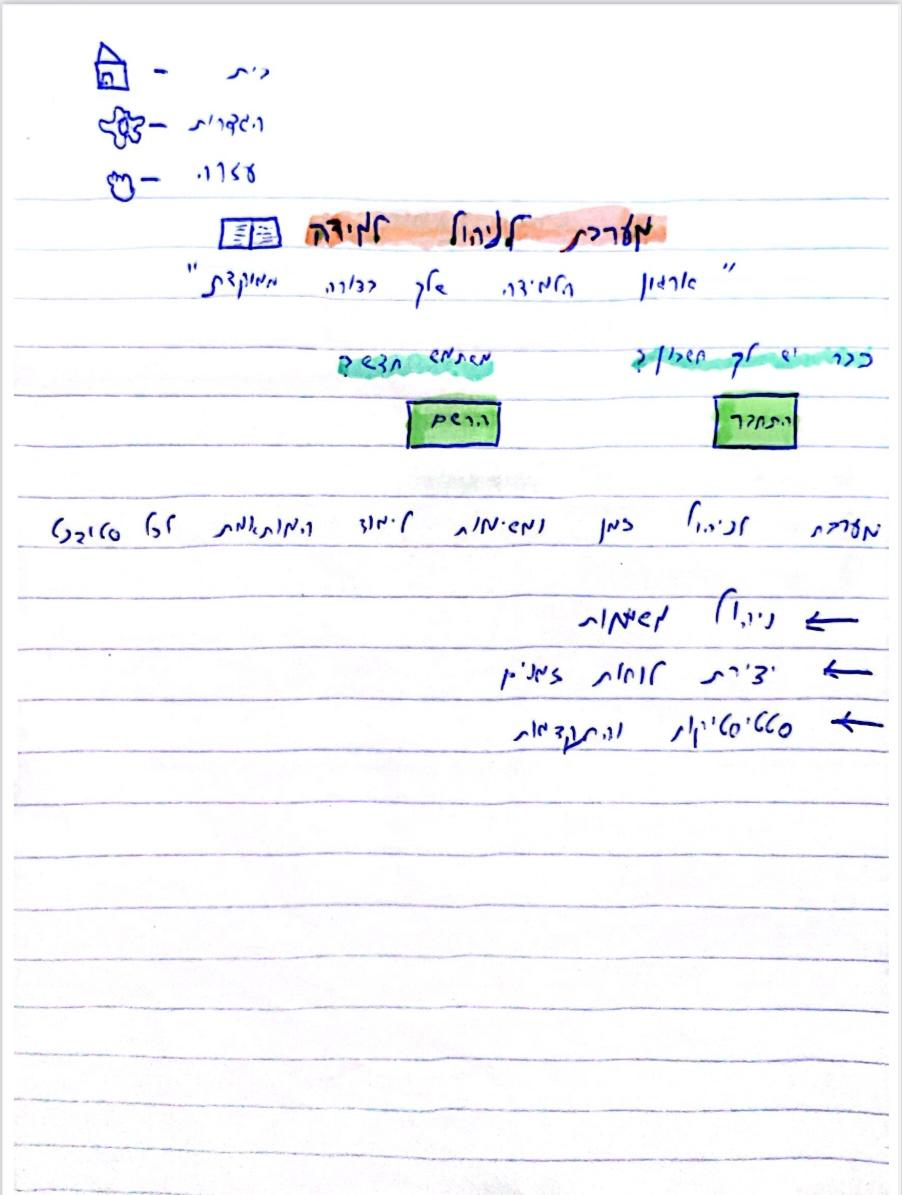 בית -
הגדרות -
עזרה -
מערכת לניהול למידה
"ארגון הלמידה שלך בצורה ממוקדת"
כבר יש לך חשבון? משתמש חדש?
התחבר הרשם
מערכת לניהול זמן ומשימות לימוד המותאמת לכל סטודנט
← ניהול משימות
← יצירת לוחות זמנים
← סטטיסטיקות והתקדמות